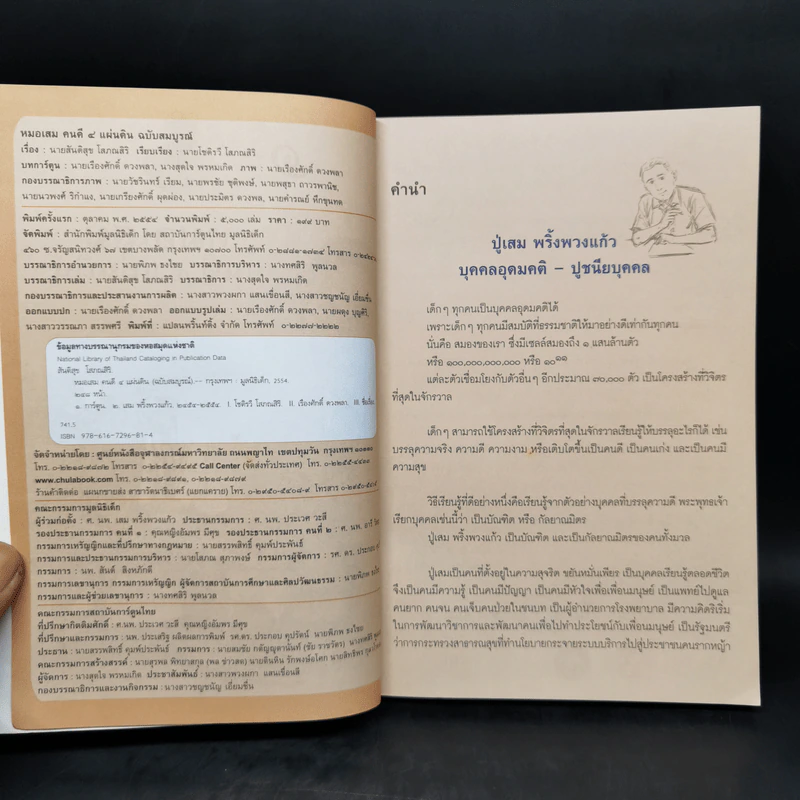 หมอเสม คนดี ๔ แผ่นดิน ฉบับสมบูรณ์
เรื่อง : นายสันติสุข โสภณสิริ เรียบเรียง : นายโชติรวี โสภณสิริ
บทการ์ตูน : นายเรืองศักดิ์ ดวงพลา, นางสุดใจ พรหมเกิด ภาพ : นายเรืองศักดิ์ ดวงพลา
กองบรรณาธิการภาพ : นายวัชรินทร์ เรียม, นายพรชัย ชุติพงษ์, นายพสุธา ถาวรพานิช,
นายนวพงศ์ ริกำแง, นายเกรียงศักดิ์ ผุดผ่อง, นายประมิตร ดวงพล, นายคำรณย์ ทึกขุนทด
พิมพ์ครั้งแรก : ตุลาคม พ.ศ. ๒๕๕๔ จำนวนพิมพ์ : ๕,๐๐๐ เล่ม ราคา : ๑๙๙ บาท
จัดพิมพ์ : สำนักพิมพ์มูลนิธิเด็ก โดย สถาบันการ์ตูนไทย มูลนิธิเด็ก
๔๖๐ ซ.จรัญสนิทวงศ์ ๖๗ เขตบางพลัด กรุงเทพฯ ๑๐๗๐๐ โทรศัพท์ ๐-๒๘๘๑-๑๗๓๔ โทรสาร
บรรณาธิการอำนวยการ : นายพิภพ ธงไชย บรรณาธิการบริหาร : นางทศสิริ พูลนวล
บรรณาธิการเล่ม : นายสันติสุข โสภณสิริ บรรณาธิการ : นางสุดใจ พรหมเกิด
กองบรรณาธิการและประสานงานการผลิต : นางสาวพวงผกา แสนเขื่อนสี, นางสาวชญชนัญ เอี่ยมชื่น
ออกแบบปก : นายเรืองศักดิ์ ดวงพลา ออกแบบรูปเล่ม : นายเรืองศักดิ์ ดวงพลา, นายผดุง บุญศิริ,
นางสาววรรณภา สรรพศรี พิมพ์ที่ : แปลนพริ้นท์ติ้ง จำกัด โทรศัพท์ ๐-๒๒๗๗-๒๒๒๒
ข้อมูลทางบรรณานุกรมของหอสมุดแห่งชาติ
National Library of Thailand Cataloging in Publication Data
สันติสุข โสภณสิริ.
หมอเสม คนดี ๔ แผ่นดิน (ฉบับสมบูรณ์).-- กรุงเทพฯ : มูลนิธิเด็ก, 2554.
๒๔๘ หน้า.
๑. การ์ตูน. ๒. เสม พริ้งพวงแก้ว. ๒๔๕๔-๒๕๕๔. I. โชติรวี โสภณสิริ. II. เรืองศักดิ์ ดวงพลา, III. ชื่อเรื่อง.
741.5
ISBN 978-616-7296-81-4
จัดจำหน่ายโดย : ศูนย์หนังสือจุฬาลงกรณ์มหาวิทยาลัย ถนนพญาไท เขตปทุมวัน กรุงเทพฯ ๑๐๓๓๐
โทร. ๐-๒๒๑๘-๙๘๗๒ โทรสาร ๐-๒๒๕๔-๙๔๙๕ Call Center (จัดส่งทั่วประเทศ) โทร. ๐-๒๒๕๕-๔๔๓๓
www.chulabook.com โทร. ๐-๒๒๑๘-๙๘๘๑, ๐-๒๒๑๘-๙๘๗๙
ร้านค้าติดต่อ แผนกขายส่ง สาขารัตนาธิเบศร์ (แยกแคราย) โทร. ๐-๒๙๕๐-๕๔๐๘-๙, โทรสาร ๐-๒๙๕๐-๕๔๐๕
คณะกรรมการมูลนิธิเด็ก
ผู้ร่วมก่อตั้ง : ศ. นพ. เสม พริ้งพวงแก้ว ประธานกรรมการ : ศ. นพ. ประเวศ วะสี
รองประธานกรรมการ คนที่ ๑ : คุณหญิงอัมพร มีศุข รองประธานกรรมการ คนที่ ๒ : ศ. นพ. อารี
กรรมการเหรัญญิกและที่ปรึกษาทางกฎหมาย : นายสรรพสิทธิ์ คุมพ์ประพันธ์
กรรมการและประธานกรรมการบริหาร : นายโสภณ สุภาพงษ์ กรรมการผู้จัดการ : รศ. ดร. ประภาภัทร
กรรมการ : นพ. สันต์ สิงหภักดี
กรรมการเลขานุการ กรรมการเหรัญญิก ผู้จัดการสถาบันการศึกษาและศิลปวัฒนธรรม : นายพิภพ ธงไชย
กรรมการและผู้ช่วยเลขานุการ : นางทศสิริ พูลนวล
คณะกรรมการสถาบันการ์ตูนไทย
ที่ปรึกษากิตติมศักดิ์ : ศ.นพ. ประเวศ วะสี คุณหญิงอัมพร มีศุข
ที่ปรึกษาและกรรมการ : นพ. ประเสริฐ ผลิตผลการพิมพ์ รศ.ดร. ประกอบ คุปรัตน์ นายพิภพ ธงไชย
ประธาน : นายสรรพสิทธิ์ คุมพ์ประพันธ์ กรรมการ : นายสมชัย กตัญญุตานันท์ (ชัย ราชวัตร) นางทศสิริ
คณะกรรมการสร้างสรรค์ : นายสุรพล พิทยาสกุล (พล ข่าวสด) นายดินหิน รักพงษ์อโศก นายสิทธิพร
ผู้จัดการ : นางสุดใจ พรหมเกิด ประชาสัมพันธ์ : นางสาวพวงผกา แสนเขื่อนสี
กองบรรณาธิการและงานกิจกรรม : นางสาวชญชนัญ เอี่ยมชื่น
คำนำ
ปู่เสม พริ้งพวงแก้ว
บุคคลอุดมคติ – ปูชนียบุคคล
เด็กๆ ทุกคนเป็นบุคคลอุดมคติได้
เพราะเด็กๆ ทุกคนมีสมบัติที่ธรรมชาติให้มาอย่างดีเท่ากันทุกคน
นั่นคือ สมองของเรา ซึ่งมีเซลล์สมองถึง ๑ แสนล้านตัว
หรือ ๑๐๐,๐๐๐,๐๐๐,๐๐๐ หรือ ๑๐๑๑
แต่ละตัวเชื่อมโยงกับตัวอื่นๆ อีกประมาณ ๗๐,๐๐๐ ตัว เป็นโครงสร้างที่วิจิตร
ที่สุดในจักรวาล
เด็กๆ สามารถใช้โครงสร้างที่วิจิตรที่สุดในจักรวาลเรียนรู้ให้บรรลุอะไรก็ได้ เช่น
บรรลุความจริง ความดี ความงาม หรือเติบโตขึ้นเป็นคนดี เป็นคนเก่ง และเป็นคนมี
ความสุข
วิธีเรียนรู้ที่ดีอย่างหนึ่งคือเรียนรู้จากตัวอย่างบุคคลที่บรรลุความดี พระพุทธเจ้า
เรียกบุคคลเช่นนี้ว่า เป็นบัณฑิต หรือ กัลยาณมิตร
ปู่เสม พริ้งพวงแก้ว เป็นบัณฑิต และเป็นกัลยาณมิตรของคนทั้งมวล
ปู่เสมเป็นคนที่ตั้งอยู่ในความสุจริต ขยันหมั่นเพียร เป็นบุคคลเรียนรู้ตลอดชีวิต
จึงเป็นคนมีความรู้ เป็นคนมีปัญญา เป็นคนมีหัวใจเพื่อเพื่อนมนุษย์ เป็นแพทย์ไปดูแล
คนยาก คนจน คนเจ็บคนป่วยในชนบท เป็นผู้อำนวยการโรงพยาบาล มีความคิดริเริ่ม
ในการพัฒนาวิชาการและพัฒนาคนเพื่อไปทำประโยชน์กับเพื่อนมนุษย์ เป็นรัฐมนตรี
ว่าการกระทรวงสาธารณสุขที่ทำนโยบายกระจายระบบบริการไปสู่ประชาชนคนรากหญ้า